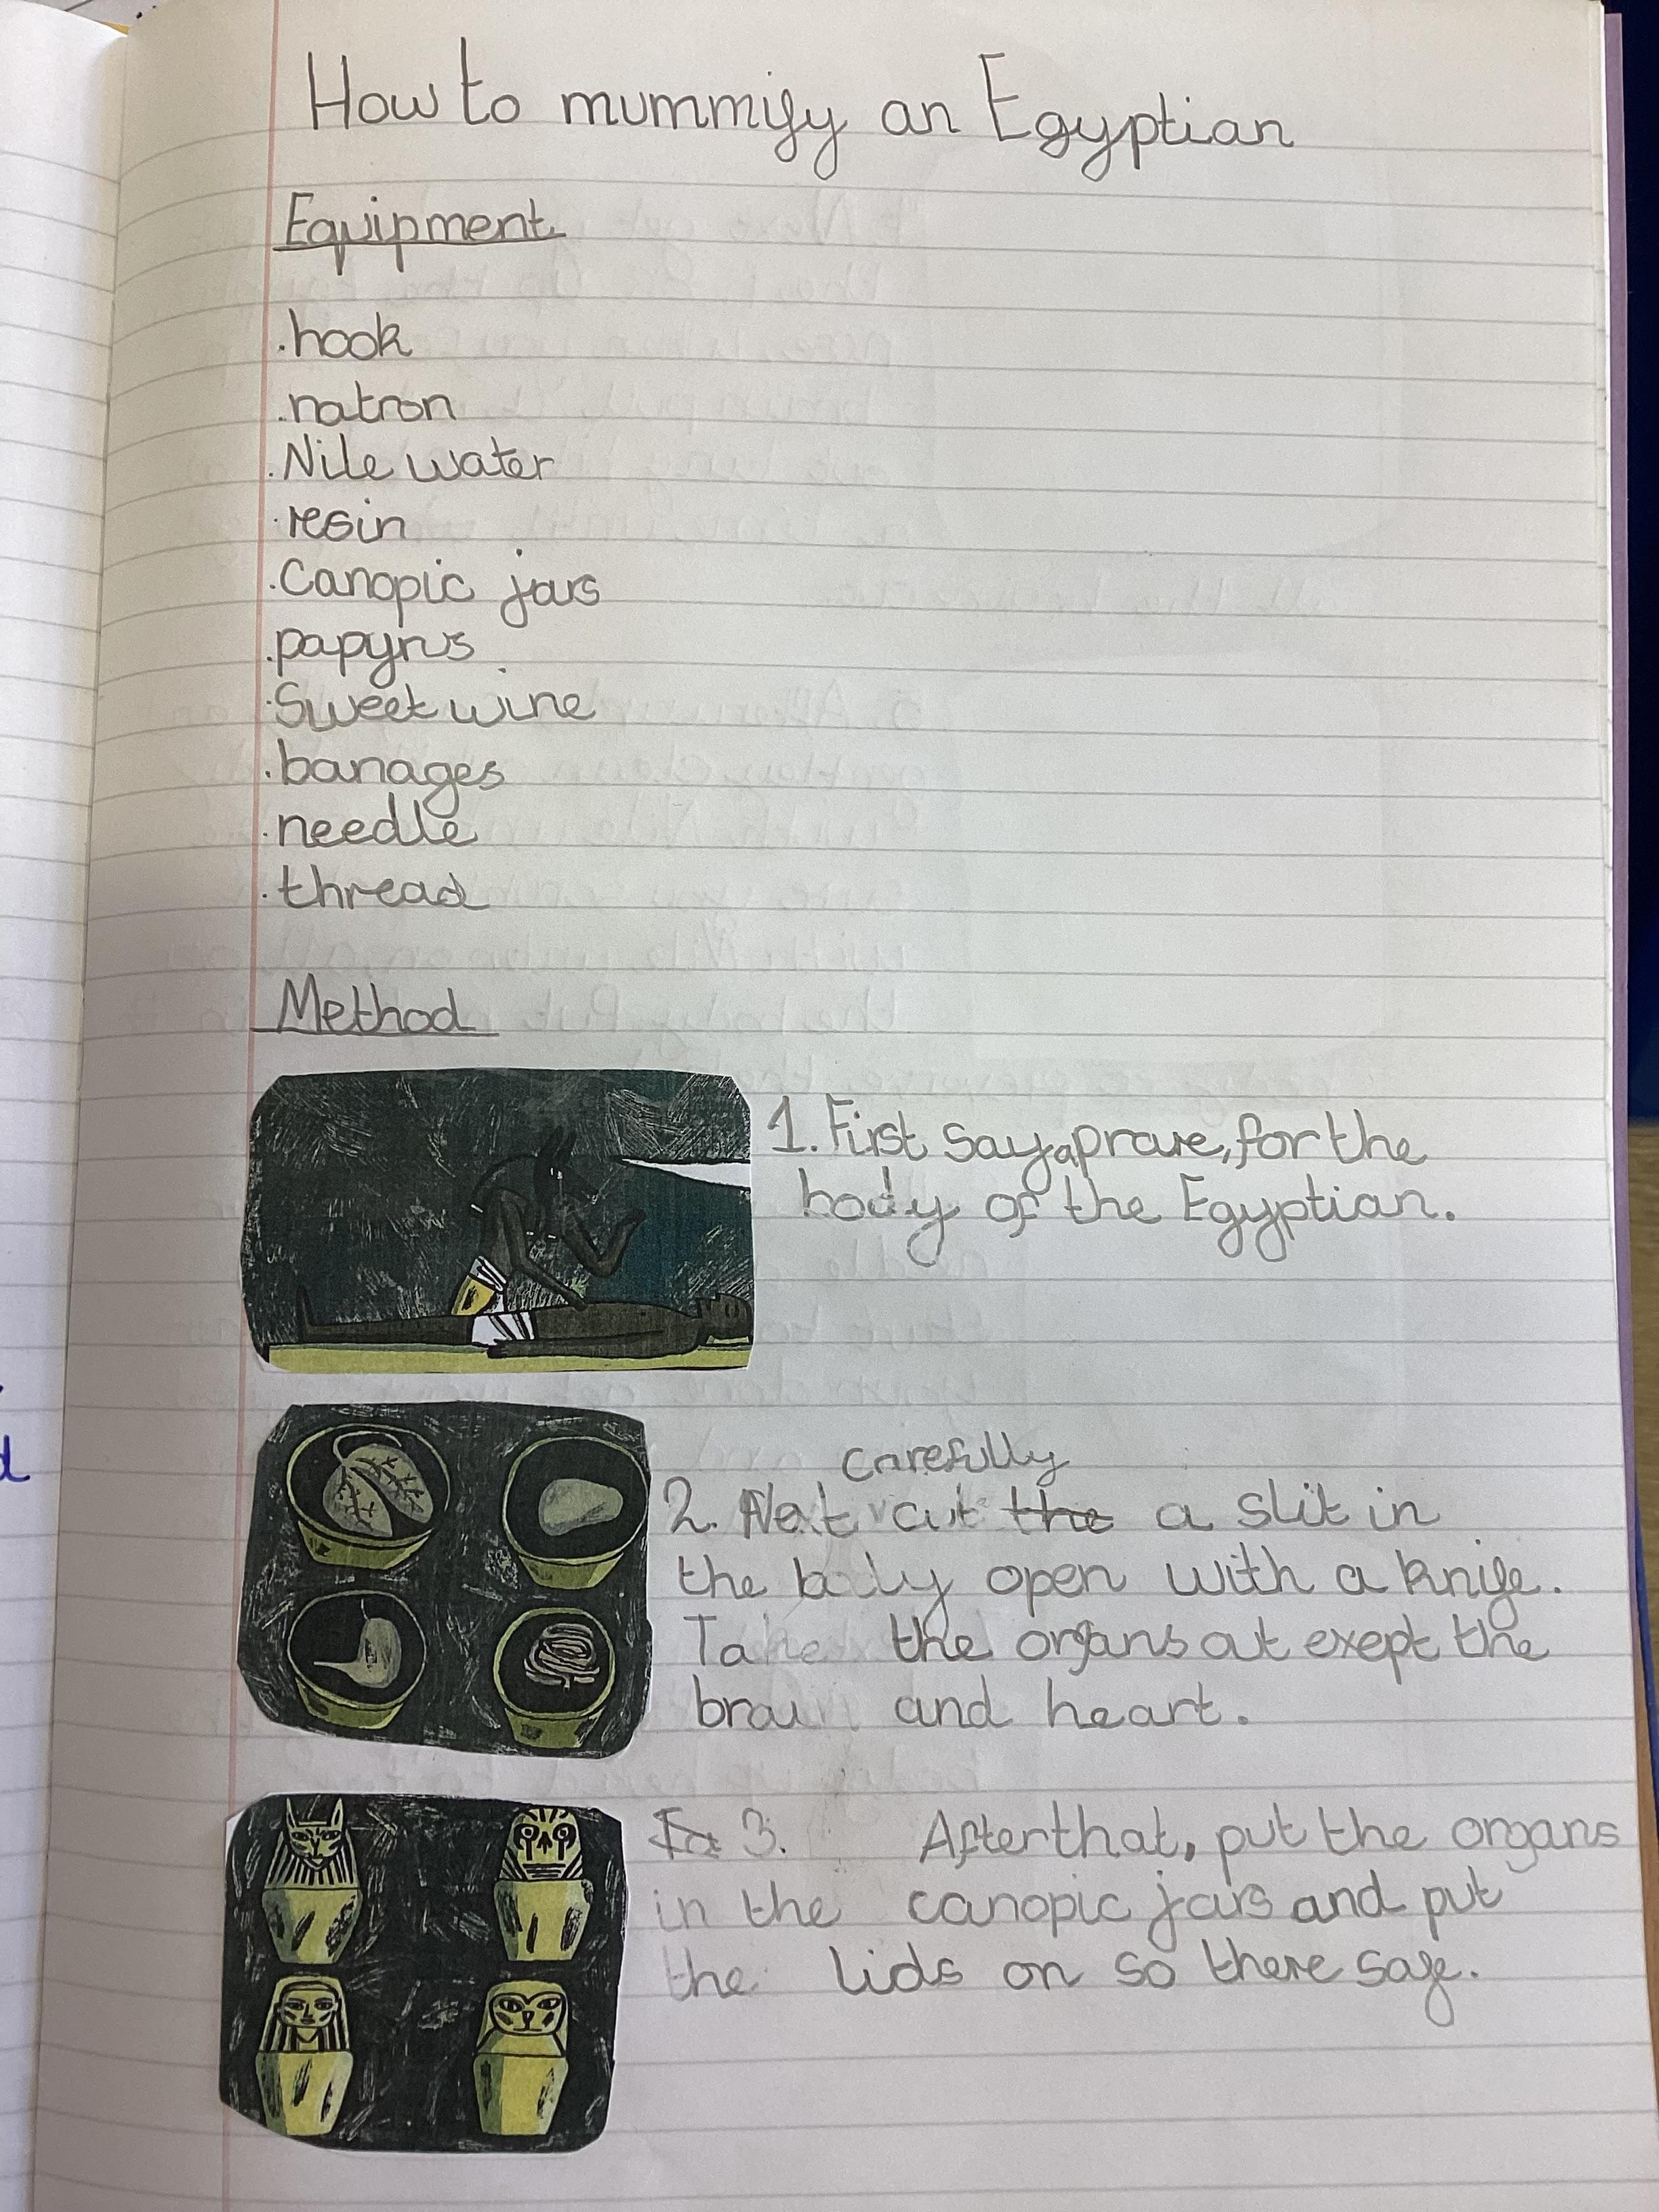 How to mummify an Egyptian
Equipment
.hook
.natron
.Nile water
.resin
.Canopic jars
.papyrus
.Sweet wine
.banages
.needle
.thread
Method
1. First say a prare, for the
body of the Egyptian.
carefully
2. Next cut the a slit in
the body open with a knife.
Take the organs out exept the
brain and heart.
3. After that, put the organs
in the canopic jars and put
the lids on so there safe.